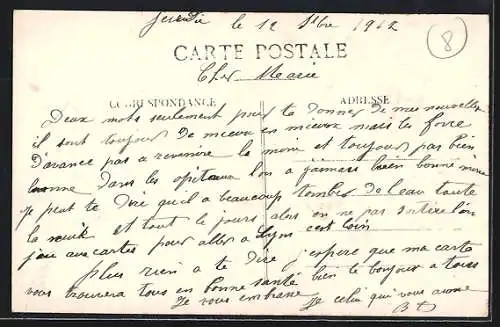 jeudi le 12 7bre 1912
8
CARTE POSTALE
Cher Marie
CORRESPONDANCE
ADRESSE
Deux mots seulement pour te donner de mes nouvelles
il sont toujour de mieux en mieux mais les force
d'avance pas a revenire la mine et toujour pas bien
bonne dans les opitaux lon a jamais bien bonne mine
je peut te dire quil a beaucoup tombes de l'eau toute
la nuit et tout le jours alors on ne pas sortire l'on
joue aux cartes pour aller a Lyon cest loin
plus rien a te dire j'espere que ma carte
vous trouvera tous en bonne santé bien le bonjour a tous
Je vous embrasse Je celui qui vous aime